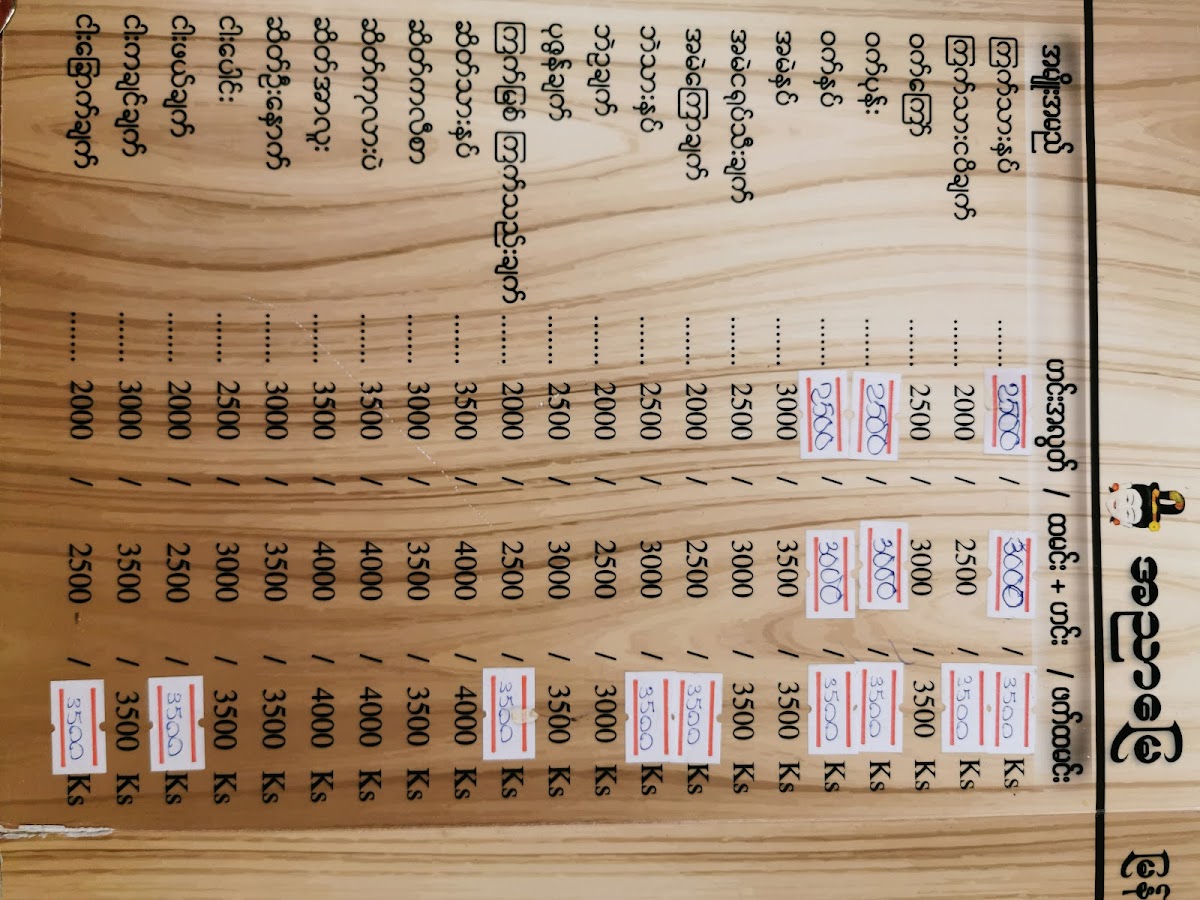 အညာမြေ မြန်
အမျိုးအမည် ဟင်းအလွတ် / ထမင်း + ဟင်း / ဖက်ထမင်း
ကြက်သားနှပ် ...... 2500 / 3000 / 3500 Ks
ကြက်သားငပိချက် ...... 2000 / 2500 / 3500 Ks
ဝက်ကြော် ...... 2500 / 3000 / 3500 Ks
ဝက်ပုန်း ...... 2500 / 3000 / 3500 Ks
ဝက်နှပ် ...... 2500 / 3000 / 3500 Ks
အမဲနှပ် ...... 3000 / 3500 / 3500 Ks
အမဲငရုပ်သီးချက် ...... 2500 / 3000 / 3500 Ks
အမဲကြောချက် ...... 2000 / 2500 / 3500 Ks
ဘဲသားနှပ် ...... 2500 / 3000 / 3500 Ks
ဘဲဥချက် ...... 2000 / 2500 / 3000 Ks
ပုဇွန်ချက် ...... 2500 / 3000 / 3500 Ks
ကြက်မြစ် ကြက်သည်းချက် ...... 2000 / 2500 / 3500 Ks
ဆိတ်သားနှပ် ...... 3500 / 4000 / 4000 Ks
ဆိတ်ကလီစာ ...... 3000 / 3500 / 3500 Ks
ဆိတ်ကုလားပဲ ...... 3500 / 4000 / 4000 Ks
ဆိတ်အာလူး ...... 3500 / 4000 / 4000 Ks
ဆိတ်ဦးနှောက် ...... 3000 / 3500 / 3500 Ks
ငါးပေါင်း ...... 2500 / 3000 / 3500 Ks
ငါးဖယ်ချက် ...... 2000 / 2500 / 3500 Ks
ငါးကချင်ချက် ...... 3000 / 3500 / 3500 Ks
ငါးခြောက်ချက် ...... 2000 / 2500 / 3500 Ks